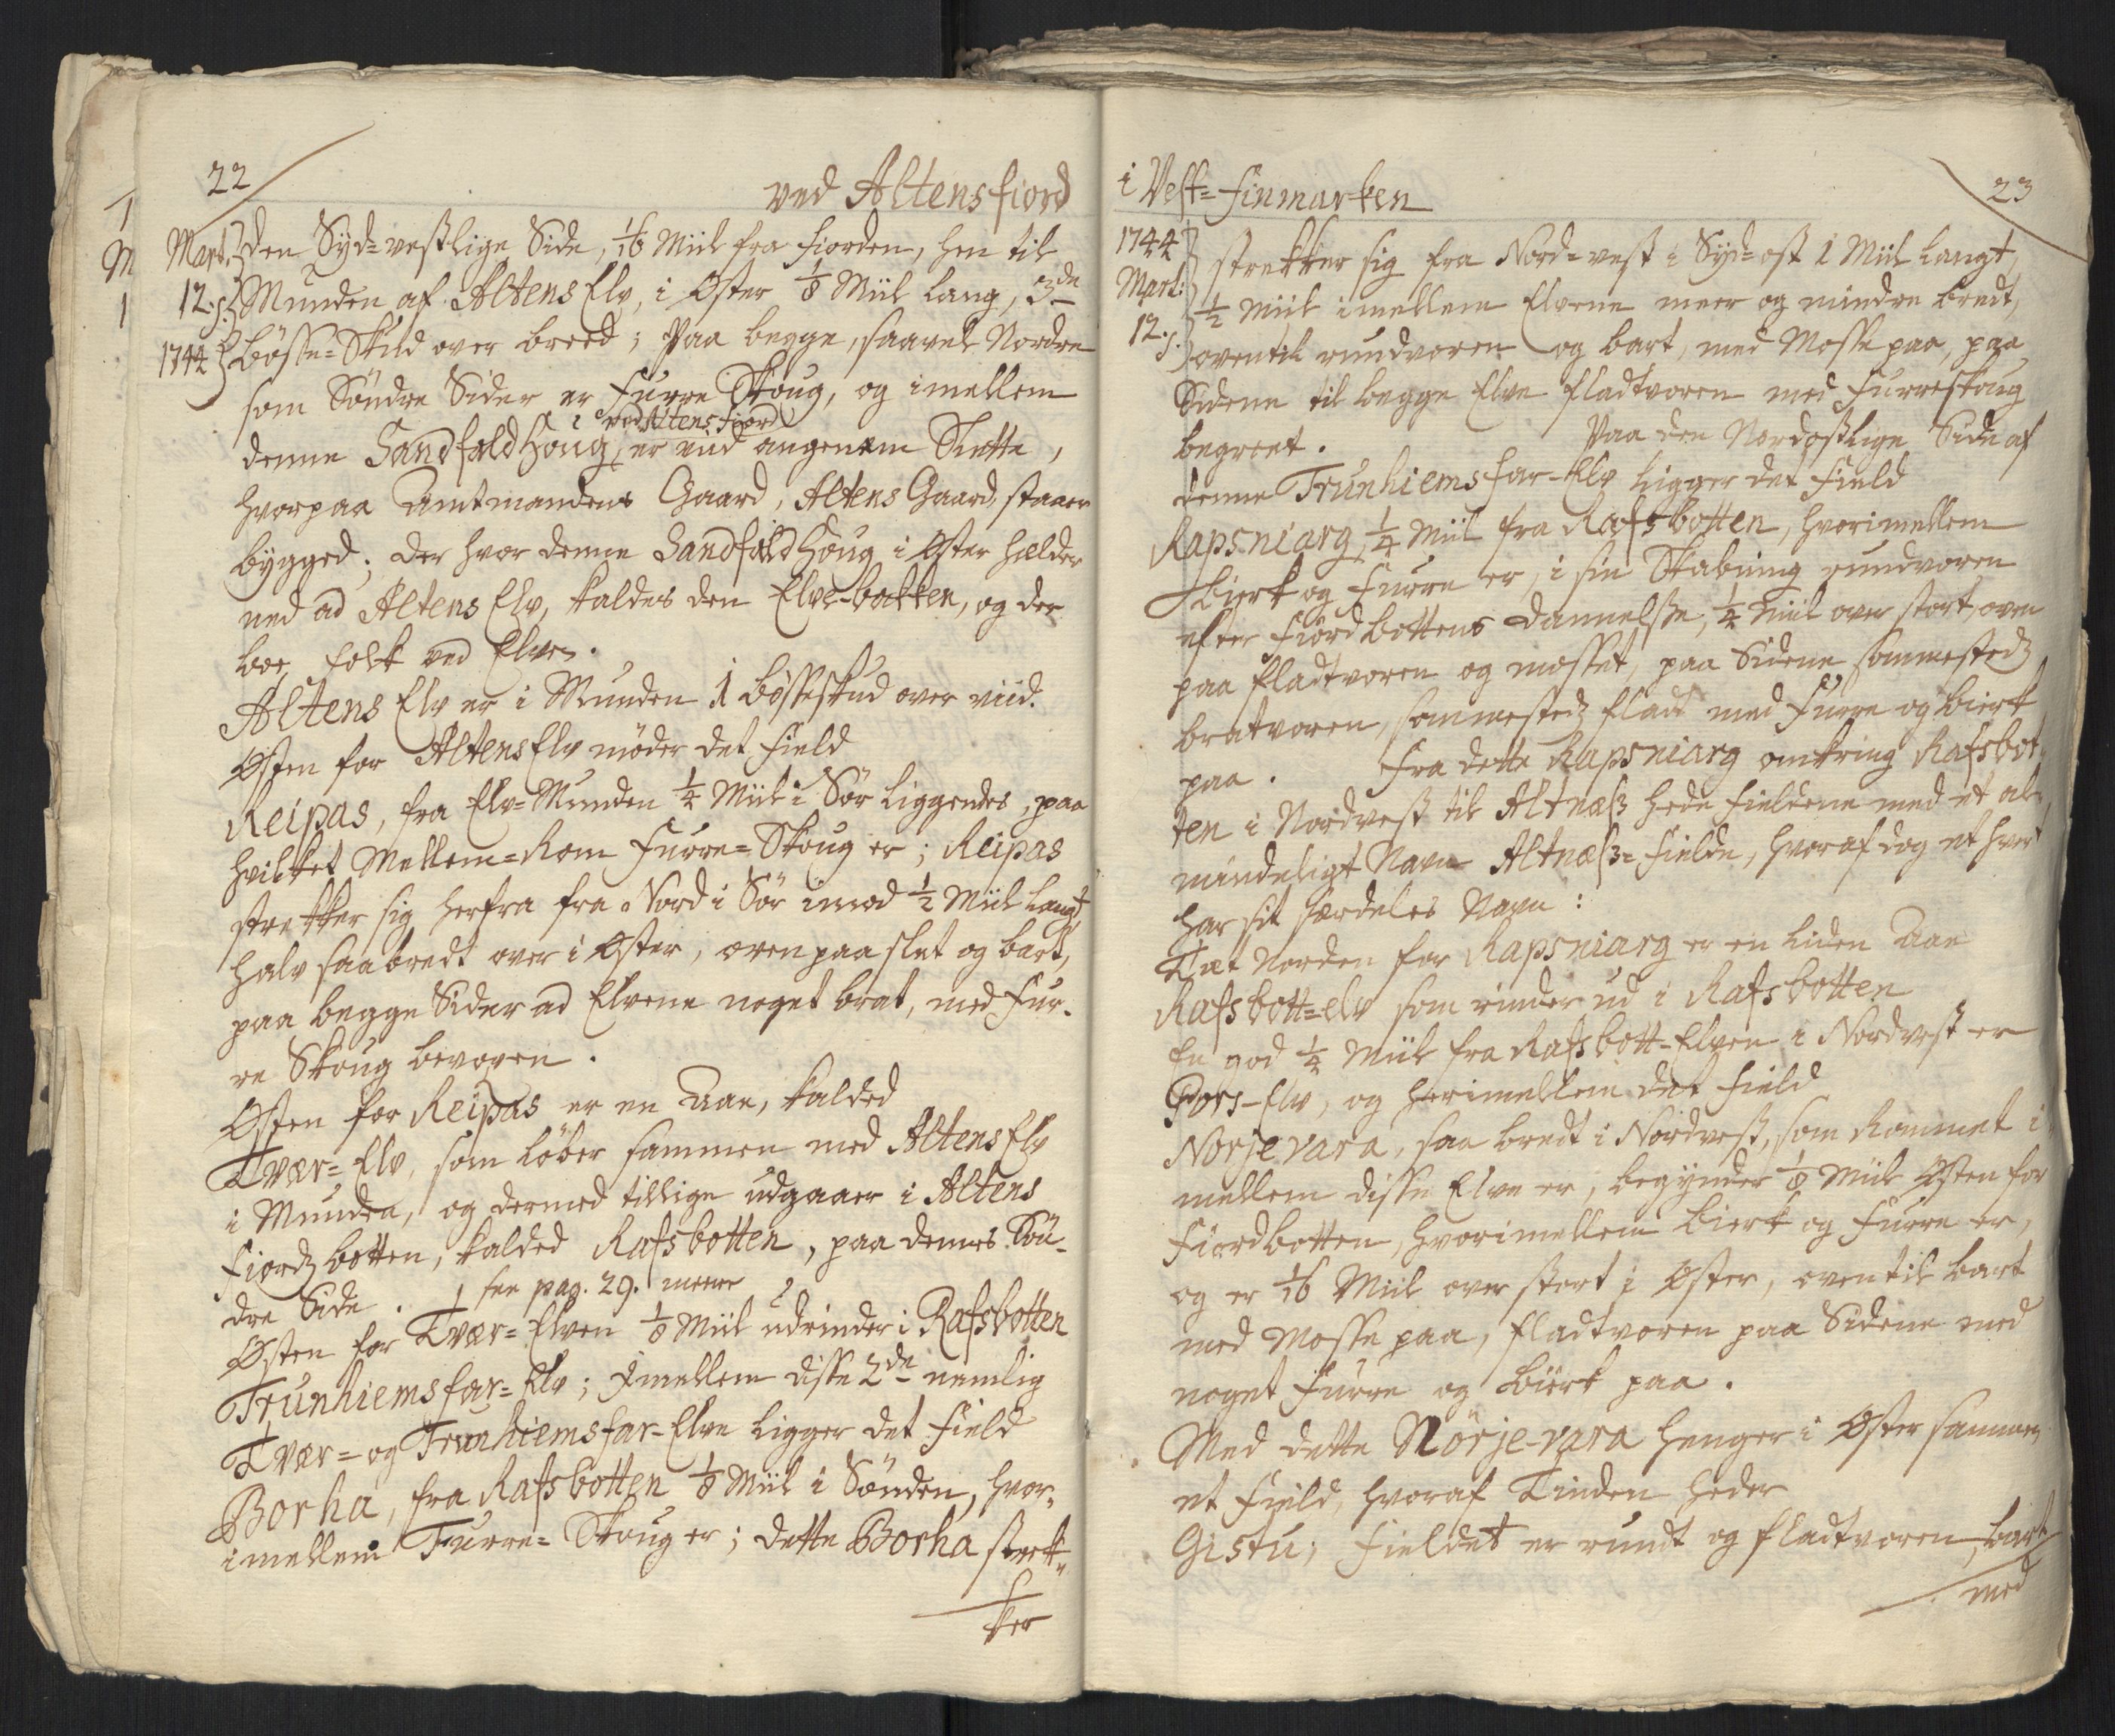 22
ved Altensfiord
Mart. den Syd-vestlige Side, 1/16 Miil fra Fiorden, hen til
12. s. Munden af Altens Elv, i Øster 1/8 Miil lang, 3de
1744 bösse-Skud over breed; Paa begge, saavel Nordre
som Söndre Sider er Furre Skoug, og imellem
ved Altens Fiord
denne Sandfald Houg, er viid angenem Slette,
hvorpaa Amtmandens Gaard, Altens Gaard, staaer
bygged; der hvor denne Sandfald Houg i Øster helder
ned ad Altens Elv, kaldes den Elve-bakken, og der
boe Folk ved Elven.
Altens Elv er i Munden 1 bösseskud over viid.
Østen for Altens Elv möder det Field
Reipas, fra Elv-Munden 1/4 Miil i Sör liggendes, paa
hvilket Mellem-Rom Furre-Skoug er; Reipas
strekker sig herfra fra Nord i Sör imod 1/2 Miil langt,
halv saa bredt over i Øster, oven paa slet og bart,
paa begge Sider ad Elvene noget brat, med Fur-
re Skoug bevoxen.
Østen for Reipas er en Aae, kalded
Tvær-Elv, som löber sammen med Altens Elv
i Munden, og dermed tillige udgaaer i Altens
Fiords botten, kalded Rafsbotten, paa dennes Sön-
dre Side. see pag. 29. meere
Østen for Tvær-Elven 1/8 Miil udrinder i Rafsbotten
Trunhiemsfar-Elv; Imellem disse 2de nemlig
Tvær- og Trunhiemsfar-Elve ligger det Field
Borha, fra Rafsbotten 1/8 Miil i Sönden, hvor-
imellem Furre-Skoug er; dette Borha strek-
ker
i Vest-Finmarken
23
1744 strekker sig fra Nord-vest i Syd-ost 1 Miil langt,
Mart: 1/2 Miil imellem Elvene meer og mindre bredt,
12. s. oventil rundvoren og bart, med Mosse paa, paa
Sidene til begge Elve fladtvoren med Furreskoug
begroet. Paa den Nordostlige Side af
denne Trunhiemsfar-Elv ligger det Field
Rapsniarg, 1/4 Miil fra Rafsbotten, hvorimellem
Bierk og Furre er, i sin Skabning rundvoren
efter Fiordbottens Dannelse, 1/4 Miil over stort, oven
paa fladtvoren og mosset, paa Sidene sommesteds
bratvoren, sommesteds fladt med Furre og Bierk
paa. Fra dette Rapsniarg omkring Rafsbot-
ten i Nordvest til Altnæss hede Fieldene med et al-
mindeligt Navn Altnæss-Fielde, hvoraf dog et hvert
har sit særdeles Navn:
Tæt Norden for Rapsniarg er en liden Aae
Rafsbott-elv som rinder ud i Rafsbotten
En god 1/4 Miil fra Rafsbott-Elven i Nordvest er
Pors-Elv, og herimellem det Field
Norjevara, saa bredt i Nordvest, som Rommet i-
mellem disse Elve er, begynder 1/8 Miil Østen for
Fiordbotten, hvorimellem Bierk og Furre er,
og er 1/16 Miil over stort i Øster, oventil bart
med Mosse paa, fladtvoren paa Sidene med
noget Furre og Bierk paa.
Med dette Nörje-vara henger i Øster sammen
et Field, hvoraf Tinden heder
Gistu; Fieldet er rundt og fladtvoren, bart
med